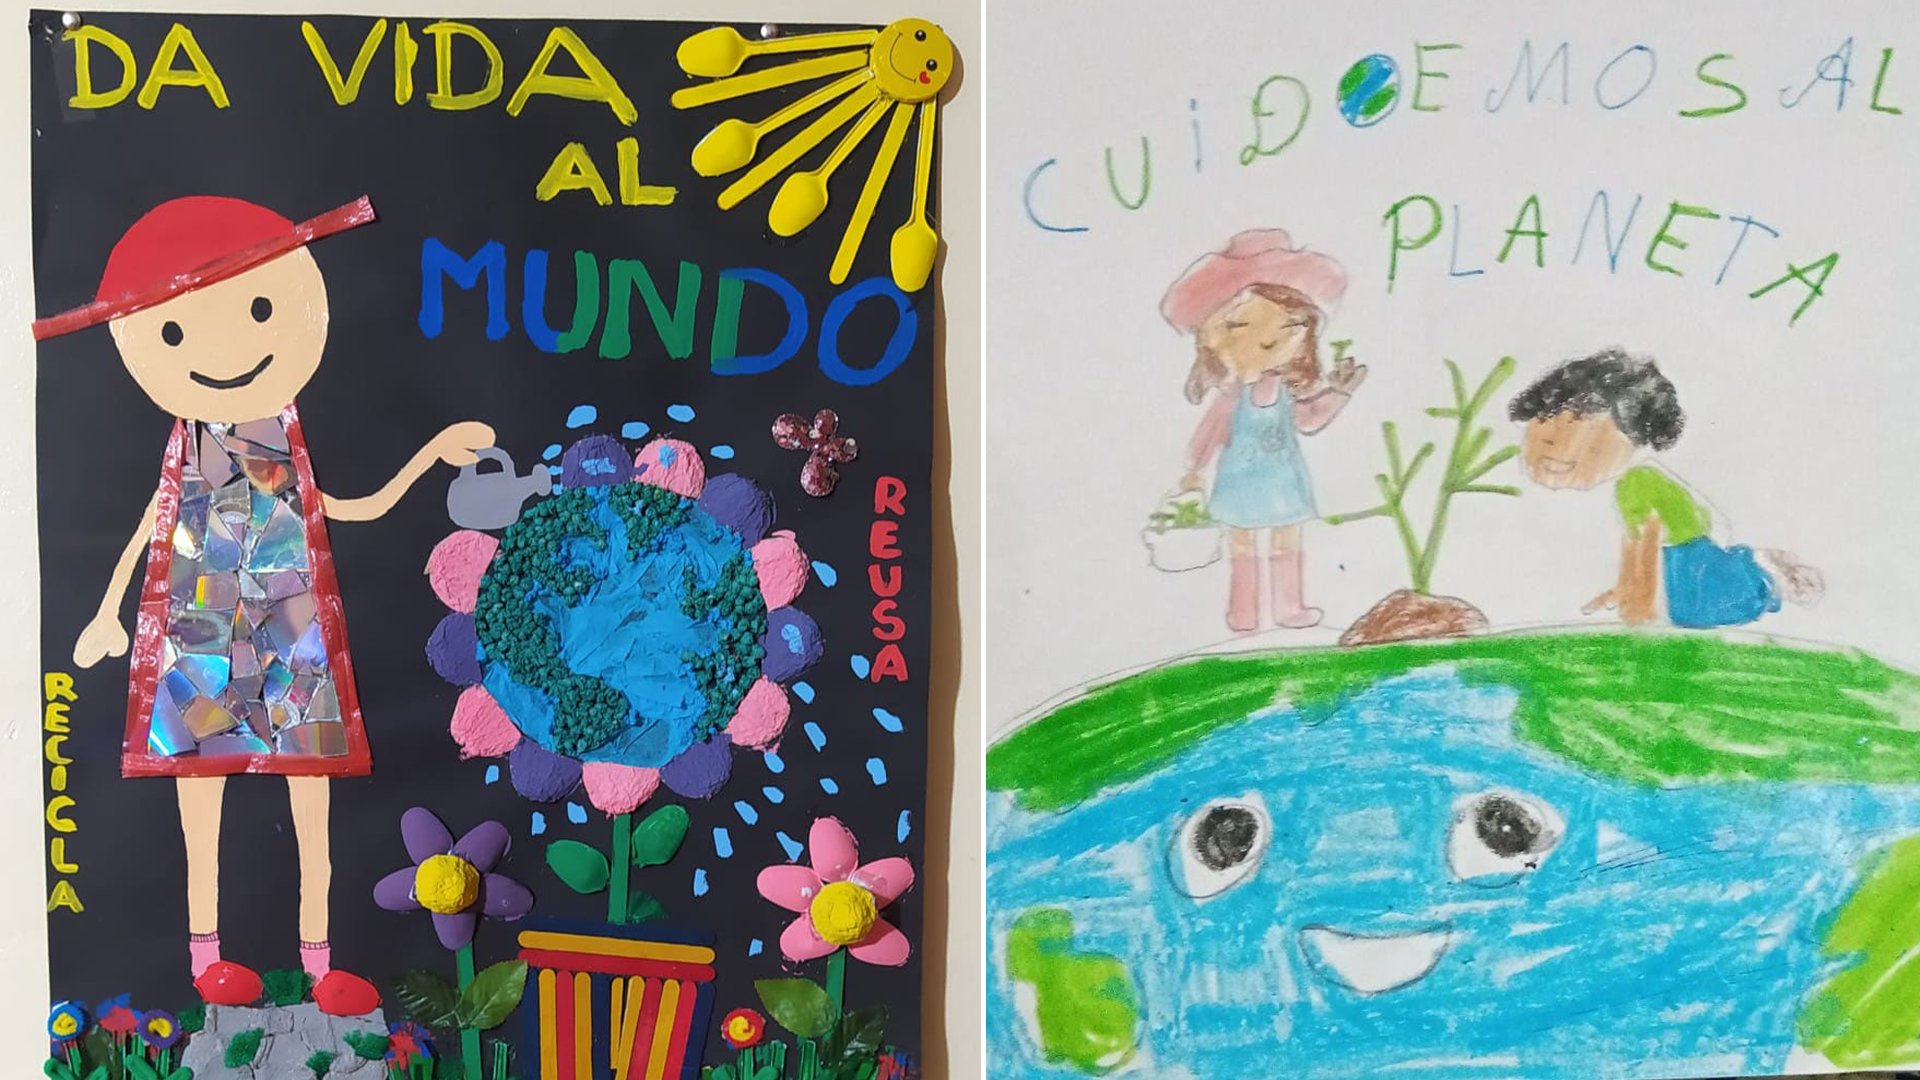 DA VIDA
AL
MUNDO
REUSA
RECICLA
CUiDEMOS AL
PLANETA